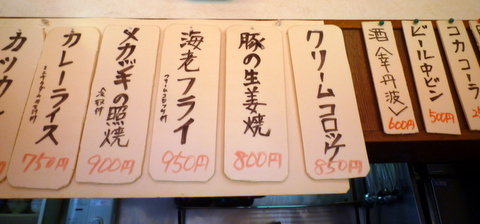 コカコーラ
ビール中ビン
500円
酒〈幸丹波〉
600円
クリームコロッケ
850円
豚の生姜焼
800円
海老フライ
950円
メカジキの照焼
900円
カレーライス
750円
カツカ